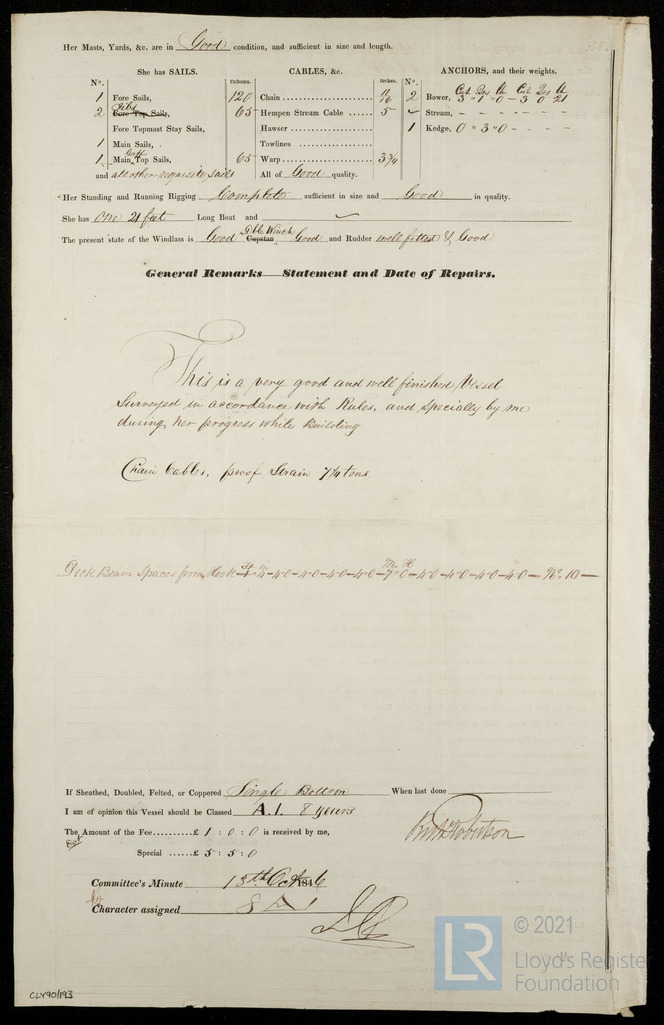 Her Masts, Yards, &c. are in Good condition, and sufficient in size and length.
She has SAILS.
CABLES, &c.
ANCHORS, and their weights.
No.
Fathoms.
Inches.
No.
Cwt Qrs lb Cwt Qrs lb
1 Fore Sails, 120 Chain 11/16 2 Bower, 3 " 1 " 0 - 3 0 21
2 Jibs Fore Top Sails, 65 Hempen Stream Cable 5 Stream, - - - - - -
Fore Topmast Stay Sails, Hawser 1 Kedge, 0 " 3 " 0 - - - -
1 Main Sails, Towlines
1 Main Gaff Top Sails, 65 Warp 3 3/4
and all other requisite sails All of Good quality.
Her Standing and Running Rigging Complete sufficient in size and Good in quality.
She has One 21 feet Long Boat and
The present state of the Windlass is Good Dble Winch Capstan Good and Rudder well fitted & Good
General Remarks—Statement and Date of Repairs.
This is a very good and well finished Vessel
Surveyed in accordance with Rules, and specially by me
during her progress while Building
Chain Cables, proof Strain 7 1/4 tons
Deck Beam Spaces from Hook 4 - 4"0 - 4"0 - 4"0 - 4"0 - M H 7"0 - 4"0 - 4"0 - 4"0 - 4"0 - No. 10 -
If Sheathed, Doubled, Felted, or Coppered Single Bottom When last done
I am of opinion this Vessel should be Classed A. 1. 8 years
The Amount of the Fee £ 1 : 0 : 0 is received by me,
Special £ 5 : 5 : 0
Robertson
Committee's Minute 15th Oct 1846
Character assigned 8 A 1
CLY90/193
LR
© 2021
Lloyd's Register
Foundation